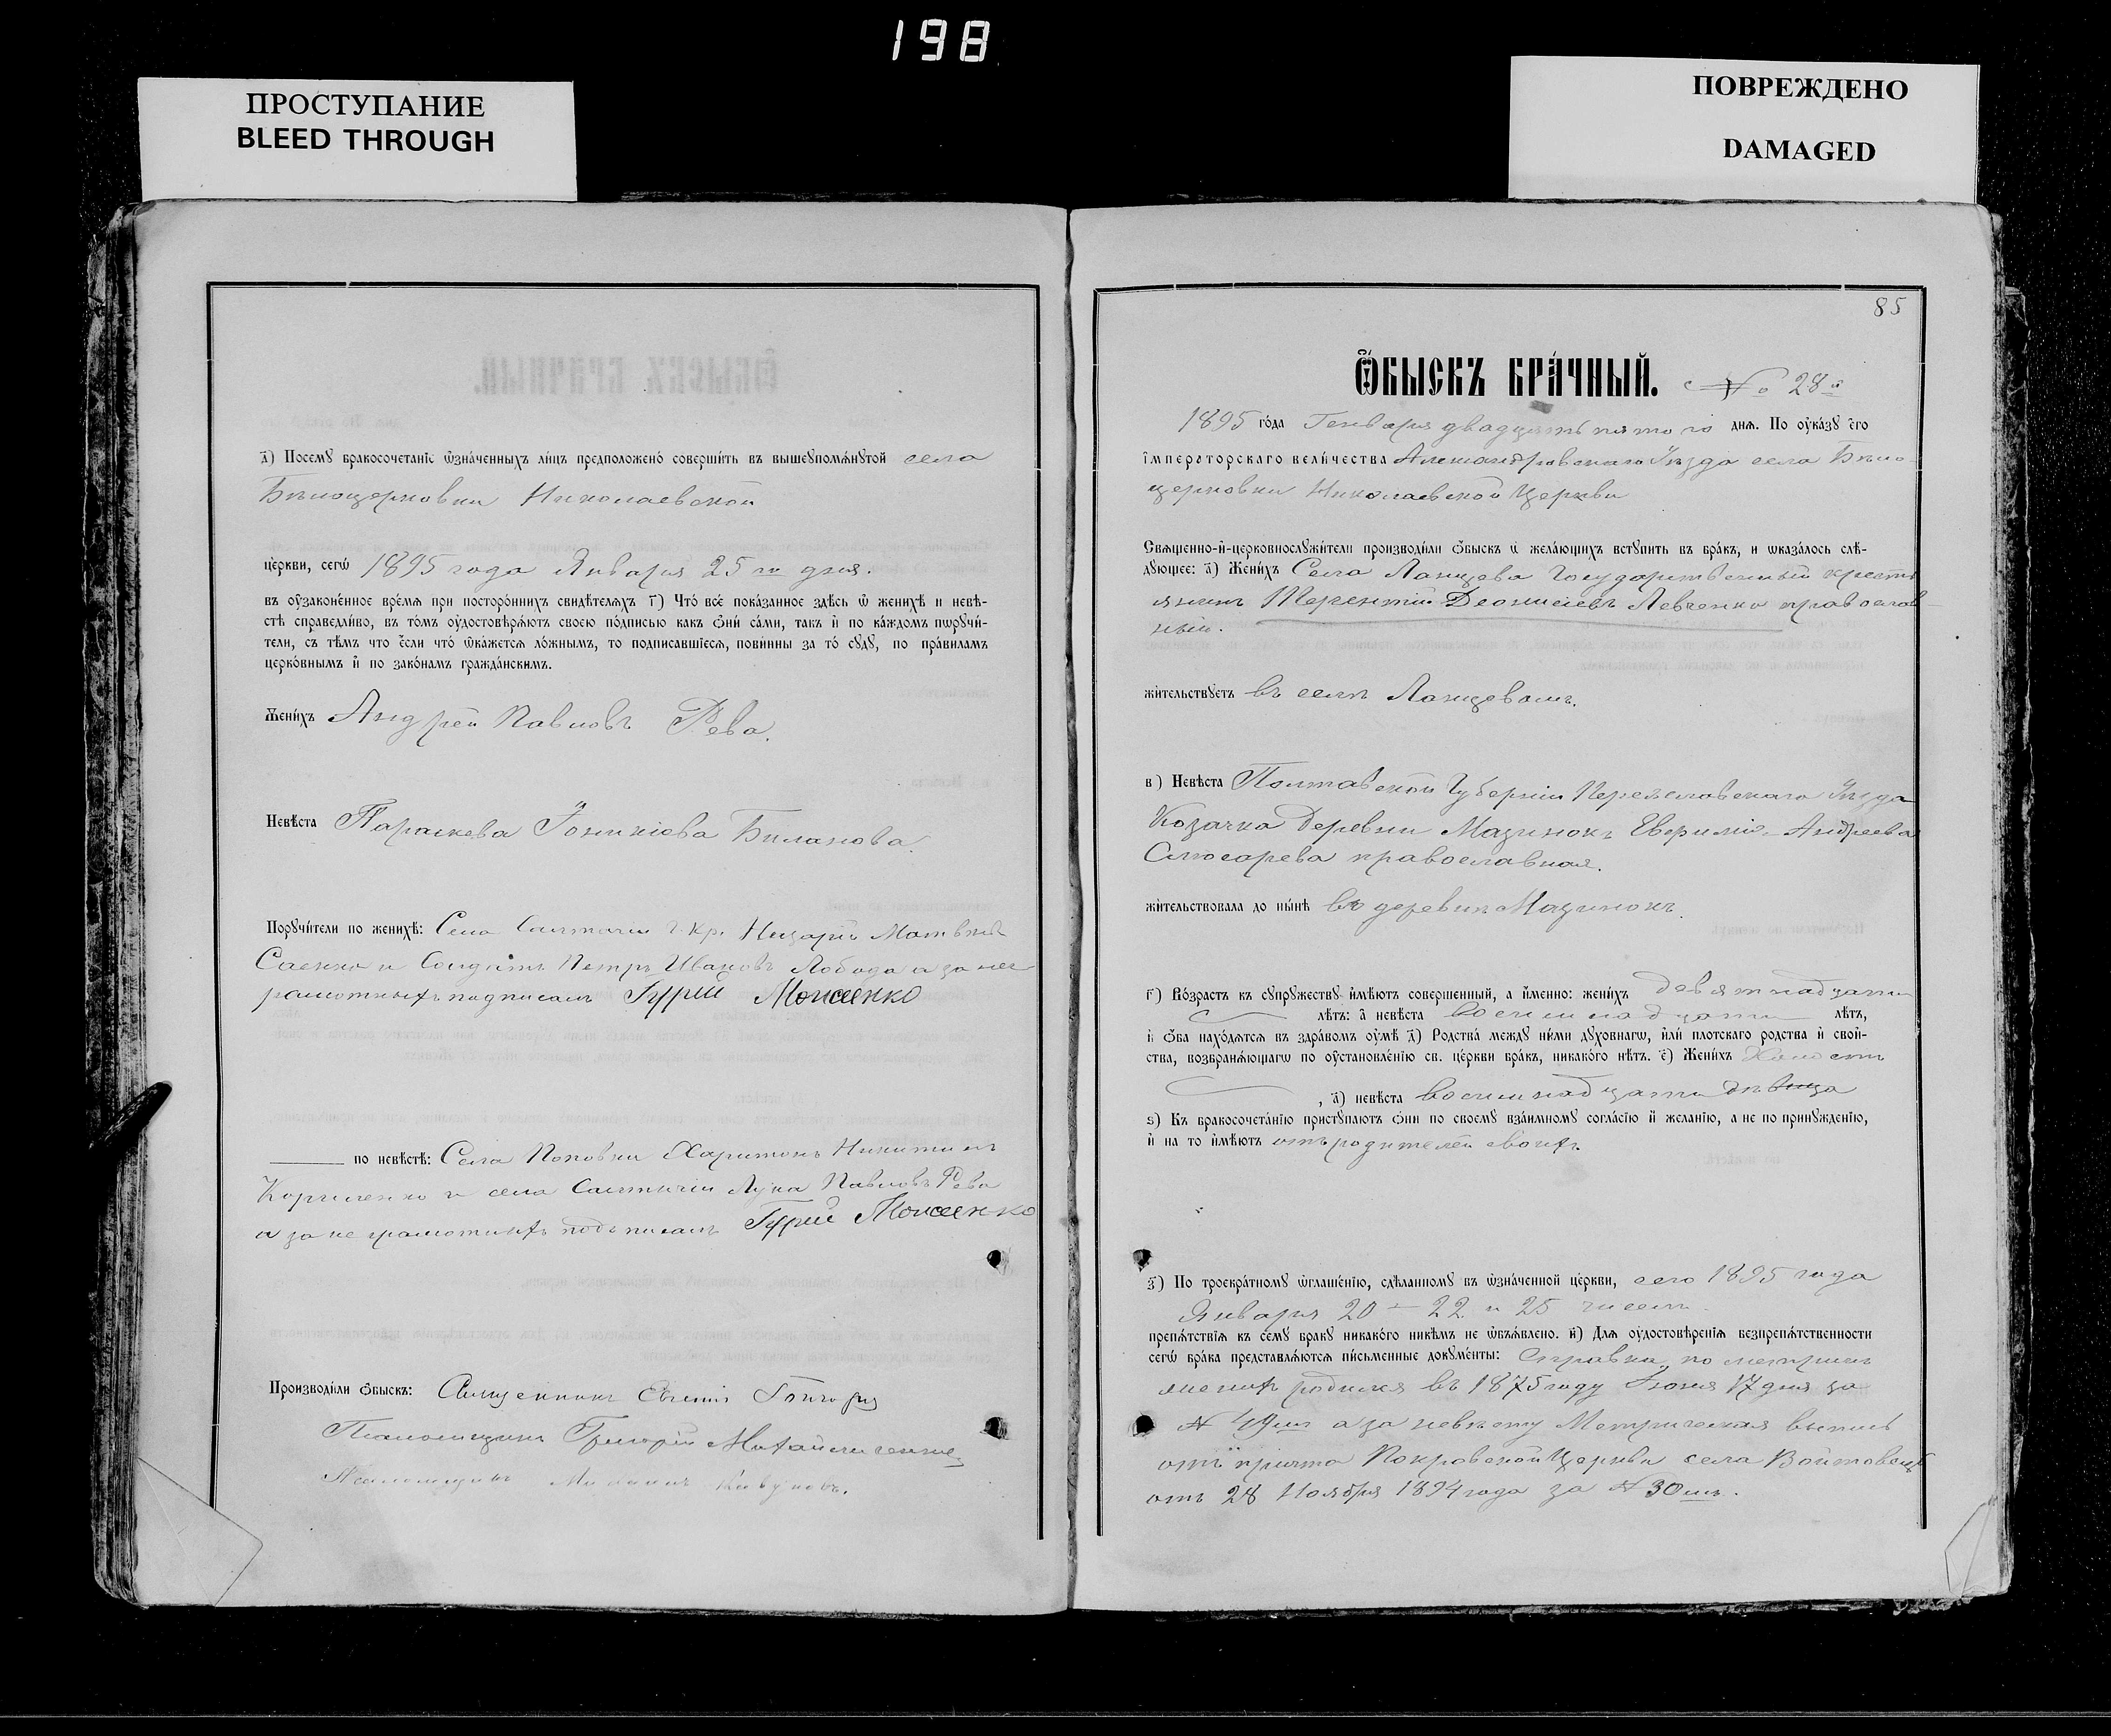 198
ПРОСТУПАНИЕ
BLEED THROUGH
ПОВРЕЖДЕНО
DAMAGED
а҃) Посемꙋ бракосочета́нїе ѡзна́ченныхъ ли́цъ предположено̀ соверши́ть въ вышеꙋпомѧ́нꙋтой села
Бѣлоцерковки Николаевской
це́ркви, сегѡ̀ 1895 года Января 25 го дня.
въ ᲂу҆зако́ненное вре́мѧ при посторо́ннихъ свидѣ́телѧхъ г҃) Что̀ всѐ пока́занное здѣ́сь ѡ женихѣ̀ и невѣ́-
стѣ справедли́во, въ то́мъ ᲂу҆достовѣрѧ́ютъ своею по́дписью какъ ѻни́ са́ми, та́къ и҆ по ка́ждомъ пѡрꙋчи́-
тели, съ тѣ́мъ что є҆́сли что̀ ѡка́жетсѧ ло́жнымъ, то подписавшїесѧ, пови́нны за то̀ сꙋдꙋ̀, по пра́виламъ
церко́внымъ и҆ по зако́намъ гражда́нскимъ.
Жени́хъ Андрей Павловъ Рева.
Невѣ́ста Параскева Іоникіева Биланова.
Порꙋчи́тели по женихѣ̀: Села Салтычіи г. кр. Назарій Матвѣевъ
Саенко и Солдатъ Петръ Ивановъ Лобода а за нег-
рамотныхъ подписалъ Гурій Моисеенко
по невѣ́стѣ: Села Поповки Харитонъ Никитинъ
Корниенко и села Салтычіи Лука Павловъ Рева
а за не грамотныхъ подъписалъ Гурій Моисеенко
Производи́ли ѻ҆́быскъ: Священникъ Евгеній Гончар
Псаломщикъ Григорій Михайличенко
Псаломщикъ
85
Ѻ҆́БЫСКЪ БРА́ЧНЫЙ. № 28 й
1895 го́да Генваря двадцать пятого днѧ. По ᲂу҆ка́зꙋ є҆гѡ
і҆мператорскаго вели́чества Александровскаго Уѣзда села Бѣло-
церковки Николаевской Церкви
Свѧщенно-и҆-церковнослꙋжи́тели производи́ли ѻ҆́быскъ ѡ҆ жела́ющихъ встꙋпи́ть въ бра́къ, и ѡказа́лось слѣ́-
дꙋющее: а҃) Жени́хъ Села Ланцева Государственный крестъ
янинъ Терентій Деонисіевъ Левченко православ-
ный.
жи́тельствꙋетъ въ селѣ Ланцевомъ.
в҃) Невѣ́ста Полтавской Губерніи Переяславскаго Уѣзда
Козачка Деревни Мазинокъ Евфимія Андреева
Слюсарева православная.
жи́тельствовала до ны́нѣ въ деревнѣ Мазинокъ.
г҃) Во́зрастъ къ сꙋпрꙋ́жествꙋ и҆мѣ́ютъ соверше́нный, а и҆́менно: жени́хъ девятнадцати
лѣ́тъ: а҆ невѣ́ста восемнадцати лѣ́тъ,
и҆ ѻ҆́ба нахо́дѧтсѧ въ здра́вомъ ᲂу҆мѣ̀ д҃) Родства̀ междꙋ ни́ми дꙋхо́внагѡ, и҆лѝ плотскаго родства̀ и҆ свой-
ства, возбранѧ́ющагѡ по ᲂу҆становле́нїю св. це́ркви бра́къ, никако́го нѣ́тъ. є҃) Жени́хъ Холостъ
, а҃) невѣ́ста восемнадцати дѣвица
ѕ҃) Къ бракосочета́нїю пристꙋпа́ютъ ѻни́ по своемꙋ взаи́мномꙋ согла́сїю и҆ жела́нїю, а не по принꙋжде́нїю,
и҆ на то и҆мѣ́ютъ отъ родителей своихъ
з҃) По троекра́тномꙋ ѡ҆глаше́нїю, сдѣ́ланномꙋ въ ѡзна́ченной це́ркви, сего 1895 года
Января 20 – 22 и 25 чиселъ
препѧ́тствїѧ къ семꙋ бракꙋ никако́го никѣ́мъ не ѡбъѧ́влено. и҃) Длѧ ᲂу҆достовѣ́ренїѧ безпрепѧ́тственности
сегѡ̀ бра́ка представлѧ́ютсѧ пи́сьменные докꙋме́нты: Справка, по метрикѣ
женихъ родился въ 1875 году Іюня 17 дня за
№ 49 мъ а за невѣсту Метрическая выпись
отъ причта Покровской Церкви села Войтовецъ
отъ 28 Ноября 1894 года за № 30 мъ.